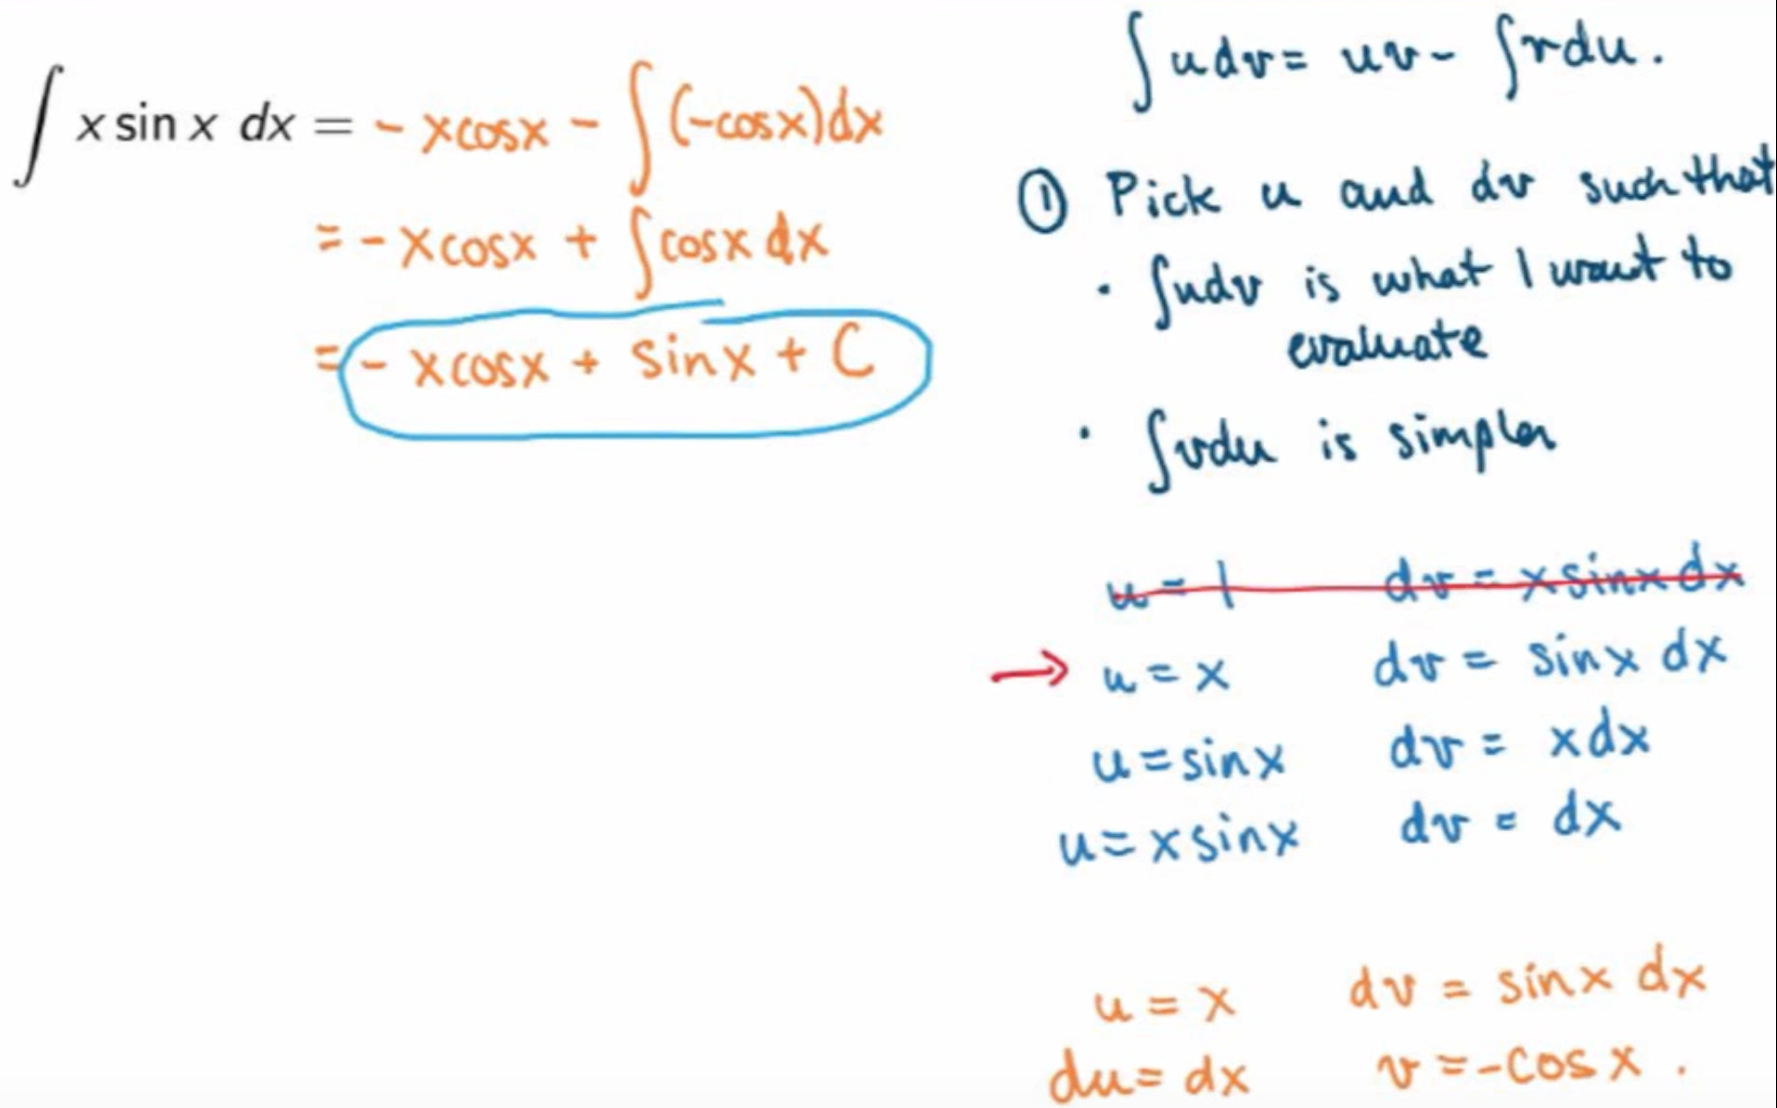 ∫ x sin x dx = - xcosx - ∫(-cosx)dx
= - xcosx + ∫cosx dx
= - xcosx + sinx + C
∫udv = uv - ∫vdu.
① Pick u and dv such that
· ∫udv is what I want to
evaluate
· ∫vdu is simpler
u = 1 dv = x sinx dx
→ u = x dv = sinx dx
u = sinx dv = xdx
u = x sinx dv = dx
u = x dv = sinx dx
du = dx v = -cosx.